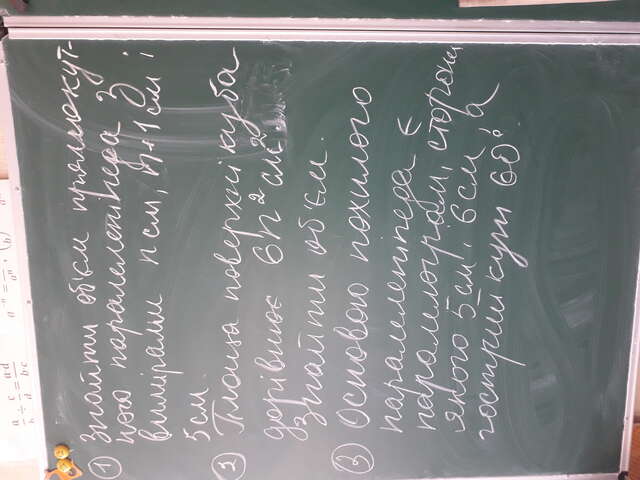 a/b ÷ c/d = a·d/b·c
① Знайти об'єм прямокут-
ного паралелепіпеда з
вимірами n см, n+1 см і
5см.
② Площа поверхні куба
дорівнює 6n² см².
Знайти об'єм.
③ Основою похилого
паралелепіпеда є
паралелограм, сторони
якого 5см і 6см, а
гострий кут 60°